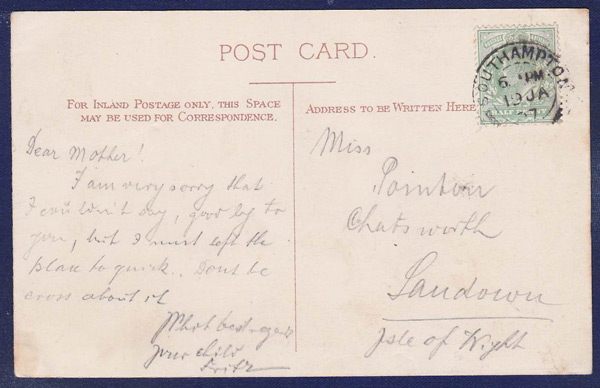 POST CARD.
FOR INLAND POSTAGE ONLY, THIS SPACE
MAY BE USED FOR CORRESPONDENCE.
Dear Mother!
I am very sorry that
I couldn't day, good by to
you, but I must left the
plase to quick. Dont be
cross about it
best regards
your child
Fritz
ADDRESS TO BE WRITTEN HERE
Miss
Pointon
Chatsworth
Sandown
Isle of Wight
SOUTHAMPTON
6 PM
19 JA